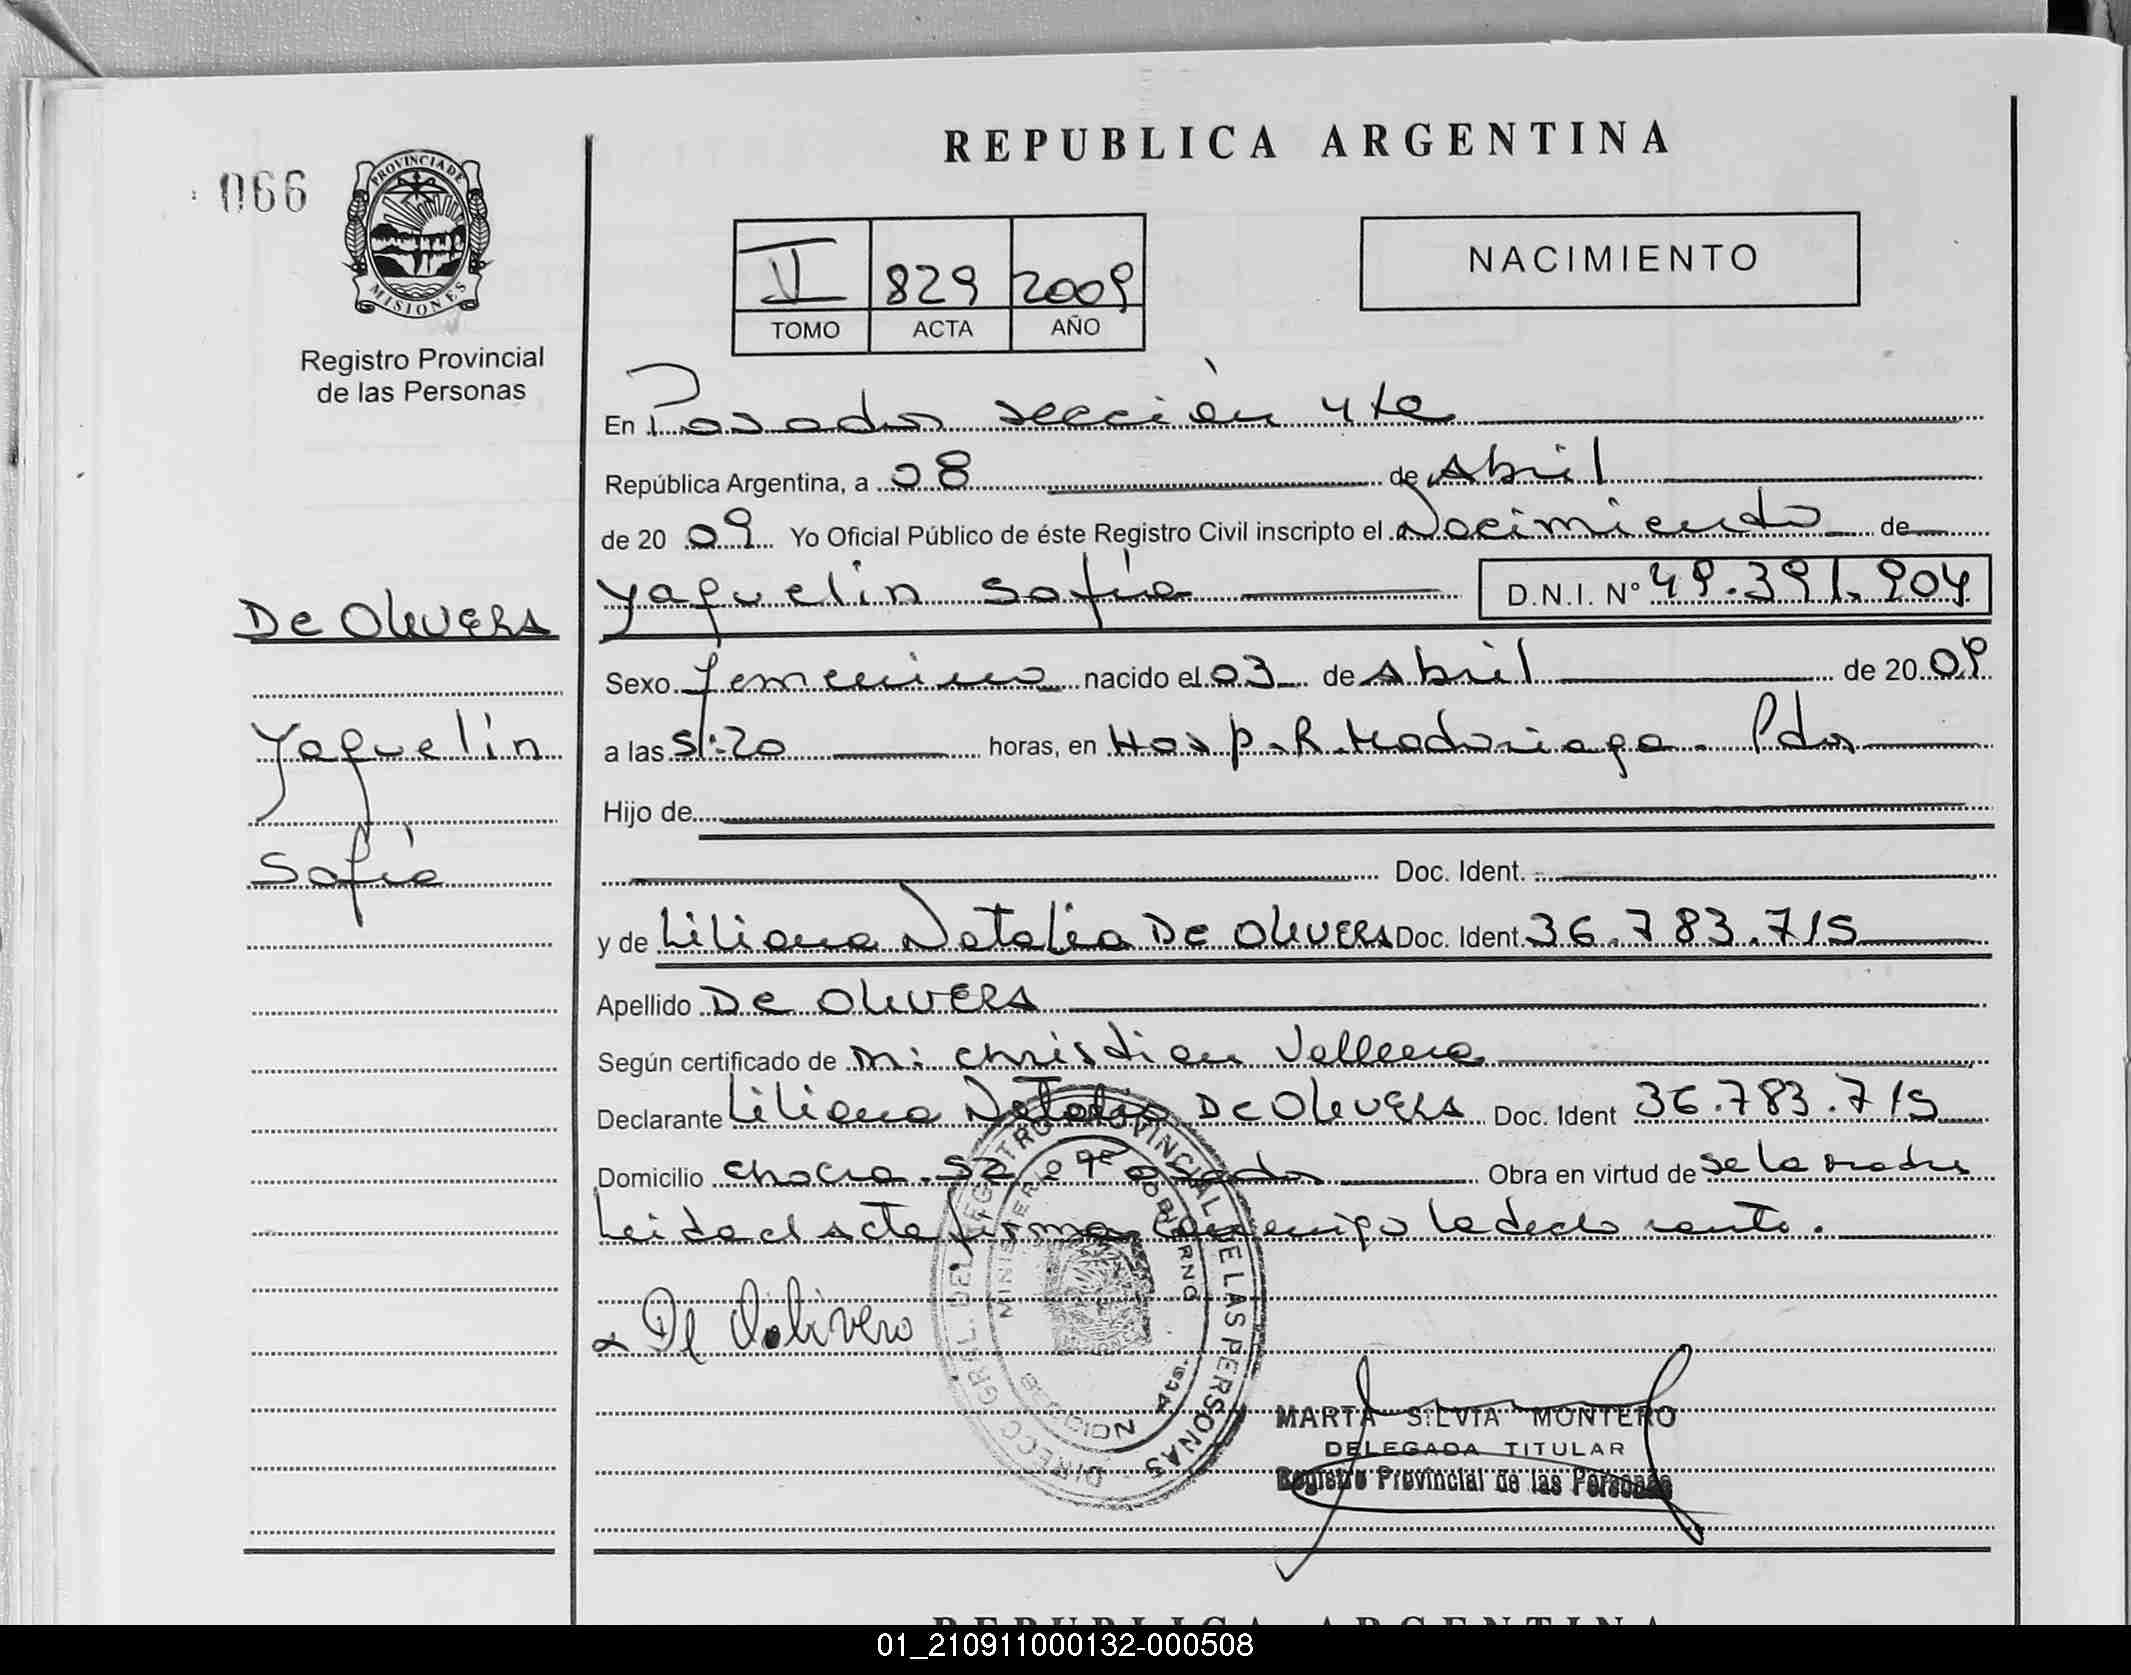 REPUBLICA ARGENTINA
066
PROVINCIA DE
MISIONES
Registro Provincial
de las Personas
II 829 2009
TOMO ACTA AÑO
NACIMIENTO
En Posadas sección 4ta
República Argentina, a 08 de Abril
de 2009 Yo Oficial Público de éste Registro Civil inscripto el Nacimiento de
Yaquelin Sofía D.N.I. Nº 49.391.904
De Olivera
Yaquelin
Sofía
Sexo femenino nacido el 03 de Abril de 2009
a las 5:20 horas, en Hosp. R. Madariaga. Pdas
Hijo de
Doc. Ident.
y de Liliana Natalia De Olivera Doc. Ident. 36.783.715
Apellido De Olivera
Según certificado de Mi Christian
Declarante Liliana Natalia De Olivera Doc. Ident 36.783.715
Domicilio Chacra. 52 Posadas Obra en virtud de se la madre
Leida el Acta firma conmigo la declarante.
De Oolivera
DIRECC. GRAL. DEL REGISTRO PROVINCIAL DE LAS PERSONAS
MINISTERIO DE GOBIERNO
SECCION 4ta.
MARTA SILVIA MONTERO
DELEGADA TITULAR
Registro Provincial de las Personas
REPUBLICA ARGENTINA
01_210911000132-000508